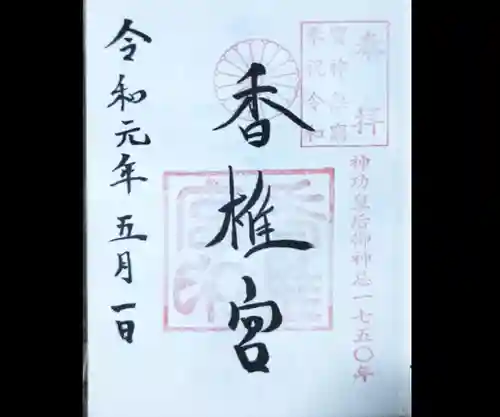 奉拝
奉祝令和
神功皇后御神忌一七五〇年
香椎宮
令和元年五月一日